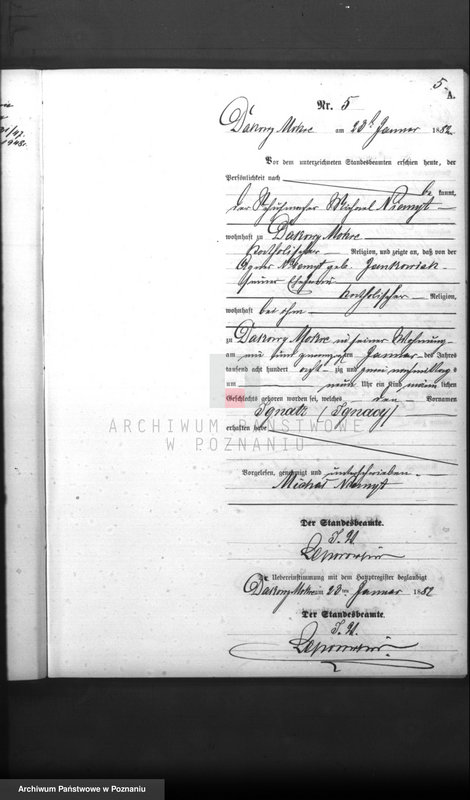 5
A.
Nr. 5
Dakowy Mokre am 23ten Januar 1882
Vor dem unterzeichneten Standesbeamten erschien heute, der
Persönlichkeit nach
be kannt,
der Schuhmacher Michael
wohnhaft zu Dakowy Mokre
katholischer Religion, und zeigte an, daß von der
geb. Jankowiak
seiner Ehefrau
katholischer Religion,
wohnhaft bei ihm
zu Dakowy Mokre in seiner Wohnung
am Januar des Jahres
tausend acht hundert acht zig und zwei nachmittags
um neun Uhr ein Kind männ lichen
Geschlechts geboren worden sei, welches den Vornamen
Ignatz (Ignacy)
erhalten habe
Vorgelesen, genehmigt und unterschrieben
Michał
Der Standesbeamte.
Die Uebereinstimmung mit dem Hauptregister beglaubigt
Dakowy Mokre am 23ten Januar 1882
Der Standesbeamte.
ARCHIWUM PAŃSTWOWE
W POZNANIU
Archiwum Państwowe w Poznaniu